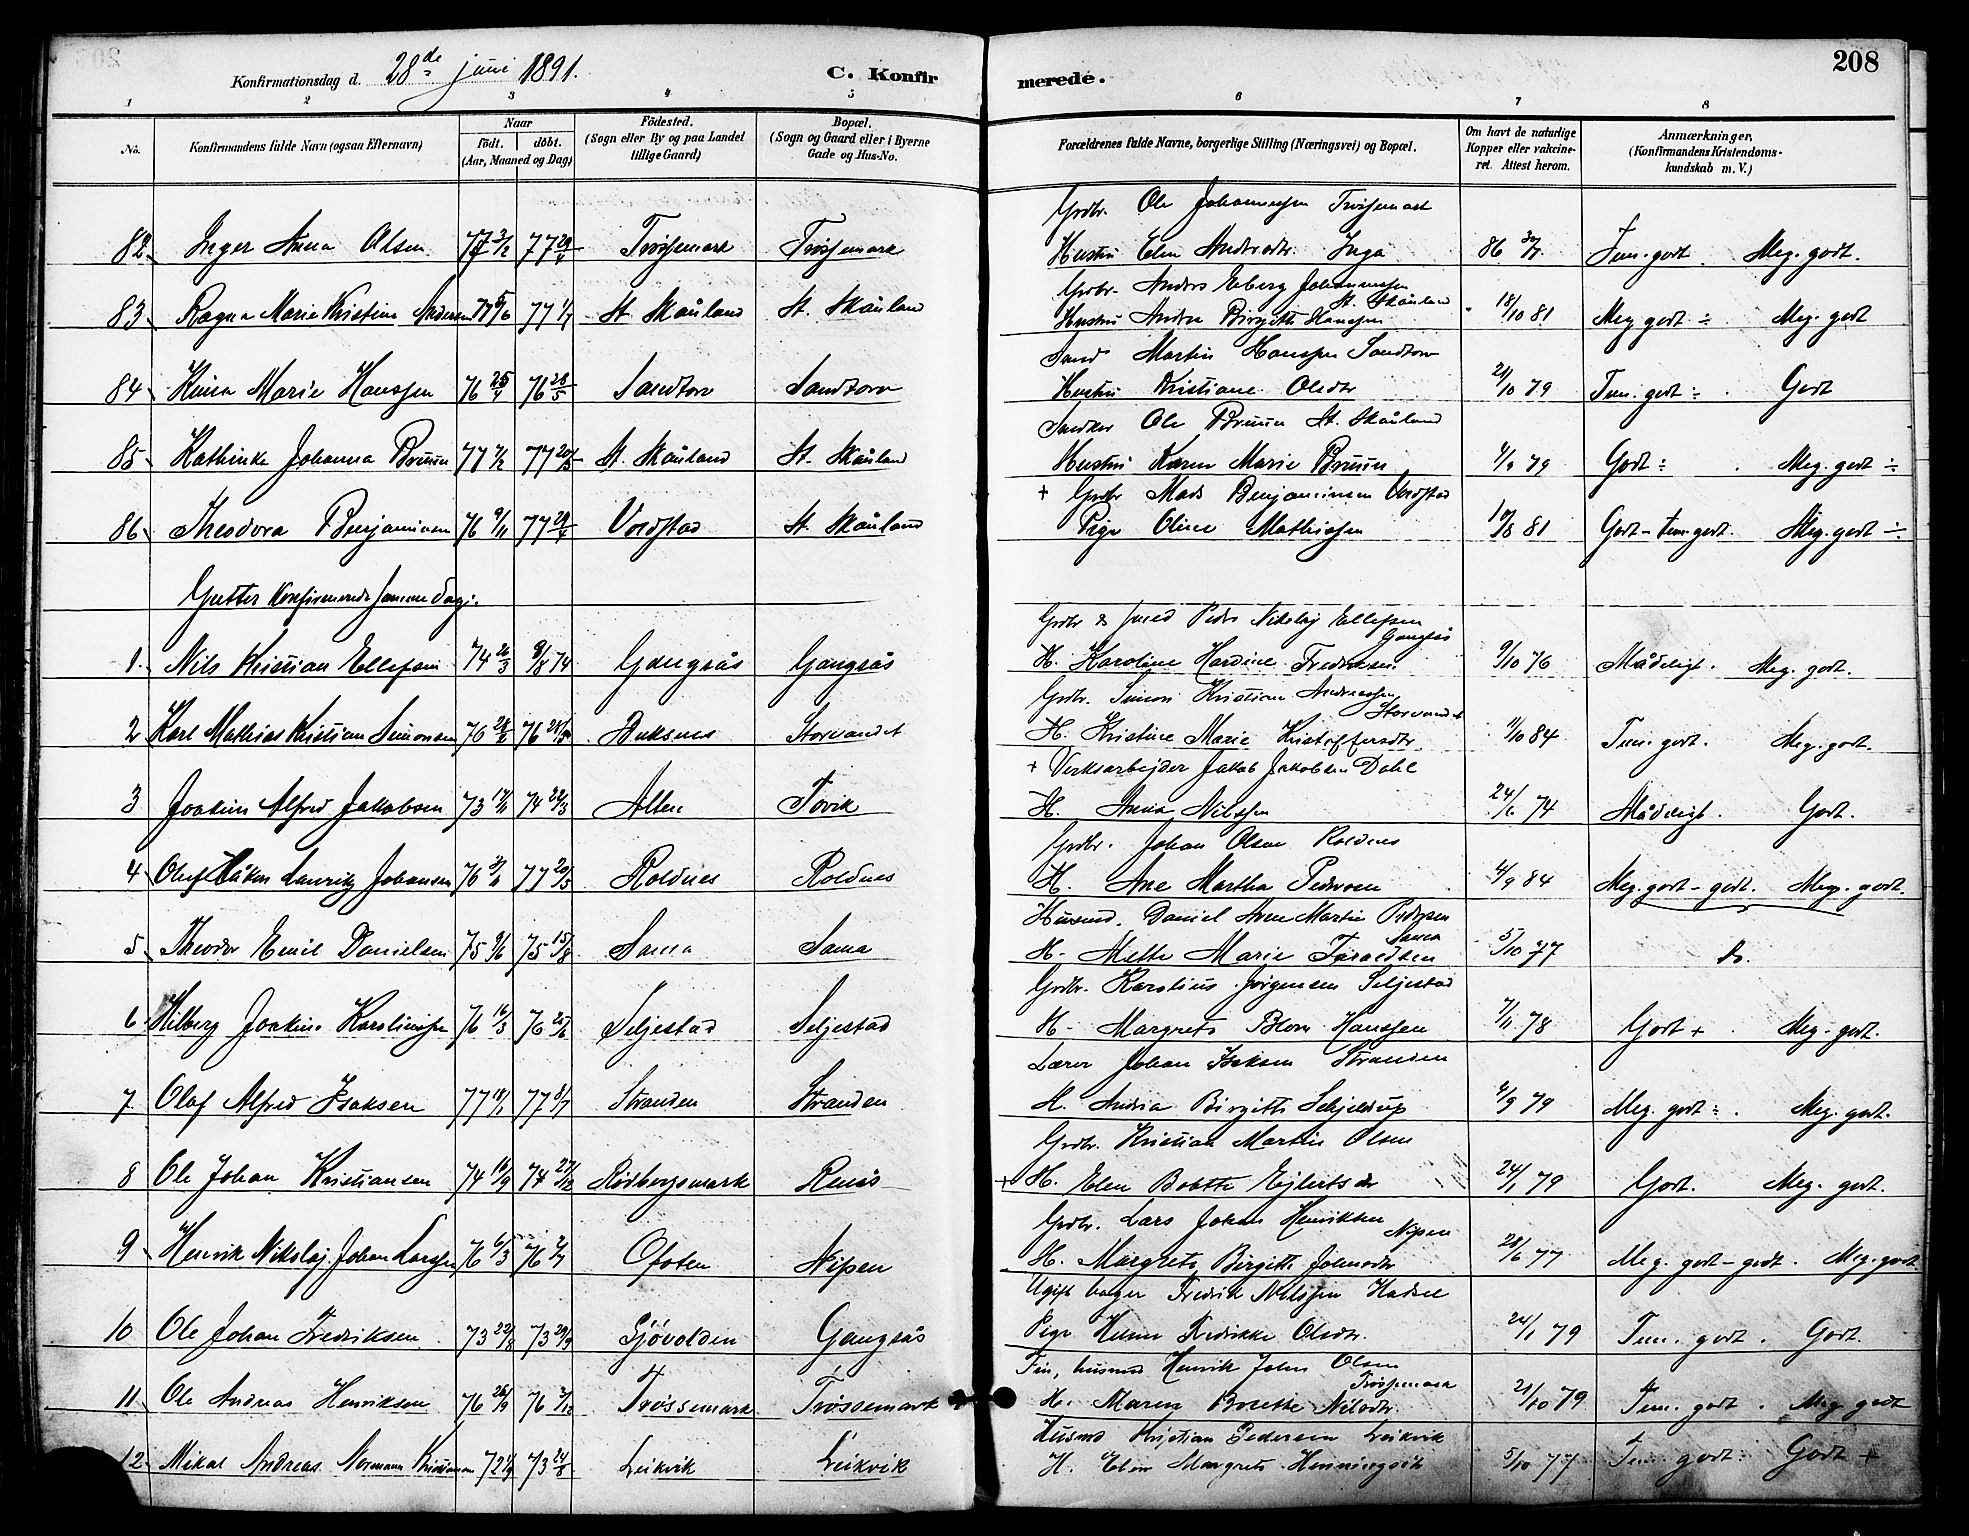 208
Konfirmationsdag d. 28de juni 1891.
C. Konfirmerede.
1 2 3 4 5 6 7 8
No.
Konfirmandens fulde Navn (ogsaa Efternavn)
Naar
født. døbt.
(Aar, Maaned og Dag)
Fødested.
(Sogn eller By og paa Landet
tillige Gaard)
Bopæl.
(Sogn og Gaard eller i Byerne
Gade og Hus-No.
Forældrenes fulde Navne, borgerlige Stilling (Næringsvei) og Bopæl.
Om havt de naturlige
Kopper eller vakcine-
ret. Attest herom.
Anmærkninger,
(Konfirmandens Kristendoms-
kundskab m. V.)
Grdbr. Ole Johannessen Trøssemark
82 Inger Anna Olsen 77 3/2 77 29/4 Trøssemark Trøssemark Hustru Elen Andrea Inga 86 Tem. godt. Meg. godt.
Grdbr. Anders Eberg Johannessen
St. Skånland
83 Ragna Marie Kristine Andersen 77 77 1/7 St. Skånland St. Skånland Hustru Andrea Birgitte Hanssen 18/10 81 Meg godt ÷ Meg. godt
Martin Hanssen Sandtorv
84 Marie Hanssen 76 25/4 76 28/5 Sandtorv Sandtorv Hustru Kristiane Olsdtr 21/10 79 Tem. godt ÷ Godt
Ole Bruun St. Skånland
85 Kathinka Johanna Bruun 77 7/2 77 20/5 St. Skånland St. Skånland Hustru Karen Marie Bruun 4/9 79 Godt ÷ Meg. godt ÷
+ Grdbr Mads Benjaminsen
86 Theodora Benjaminsen 76 9/11 77 29/4 St. Skånland Pige Oline Mathissen 81 Godt – tem. godt. Meg. godt ÷
Gutter konfirmerede samme dag:
Grdbr & smed Peder Nikolaj Ellefsen
Gangsås
1. Nils Kristian Ellefsen 74 26/3 9/8 74 Gangsås Gangsås H. Karoline Hardine Fredriksen 9/10 76 Mådeligt. Meg. godt.
Grdbr. Simon Kristian Andreassen
Storvandet
2 Karl Mathias Kristian Simonsen 76 76 Storvandet H. Kristine Marie Kristoffersdtr 1/10 84 Tem. godt. Meg. godt.
+ Verksarbejder Jakob Jakobsen Dahl
3 Joakim Alfred Jakobsen 73 17/11 74 22/3 Alten Tovik H. Anna Nilssen 24/6 74 Mådeligt. Godt.
Grdbr. Johan Olsen Roldnes
4 Oluf Håkon Lauritz Johansen 76 77 20/5 Roldnes Roldnes H. Ane Martha Pedersen 4/9 84 Meg. godt – godt. Meg. godt.
Husmd. Daniel Arne Martin Pedersen
Sama
5 Theodor Emil Danielsen 75 9/6 75 15/8 Sama Sama H. Mette Marie Toraldsen 5/10 77 do.
Grdbr. Karolius Jørgensen Seljestad
6 Hilberg Joakim Karoliussen 76 16/3 76 25/6 Seljestad Seljestad H. Margrete Blom Hanssen 7/11 78 Godt + Meg. godt.
Lærer Johan Isaksen Stranden
7 Olaf Alfred Isaksen 77 18/1 77 8/7 Stranden Stranden H. Andrea Birgitte Schjelderup 4/9 79 Meg. godt ÷ Meg. godt.
Grdbr. Kristian Martin Olsen
8 Ole Johan Kristiansen 74 16/9 74 27/12 Rødbergsmark Renså + H. Elen Bobtte Ejlertsdtr 24/1 79 Godt. Meg. godt.
Grdbr. Lars Johan Henriksen
Nipen
9 Henrik Nikolaj Johan Larssen 76 6/3 76 2/7 Ofoten Nipen H. Margrete Birgitte Johnsdtr 28/6 77 Meg. godt – godt. Meg. godt
Ugift bager Fredrik Nilssen Hadsel
10 Ole Johan Fredriksen 73 22/8 73 29/9 Sjøvolden Gangsås Pige Helene Fredrikke Olsdtr. 24/1 79 Tem. godt. Godt.
Fin, husmd Henrik Johs Olsen
Trøssemark
11 Ole Andreas Henriksen 76 26/9 76 3/12 Trøssemark Trøssemark H. Maren Bosette Nilsdtr. 21/10 79 Tem. godt. Meg. godt
Husmd Kristian Pedersen Leikvik
12 Mikal Andreas Normann Kristiansen 72 73 24/8 Leikvik Leikvik H. Elen Margrete Henningsdtr 5/10 77 Tem. godt. Godt +